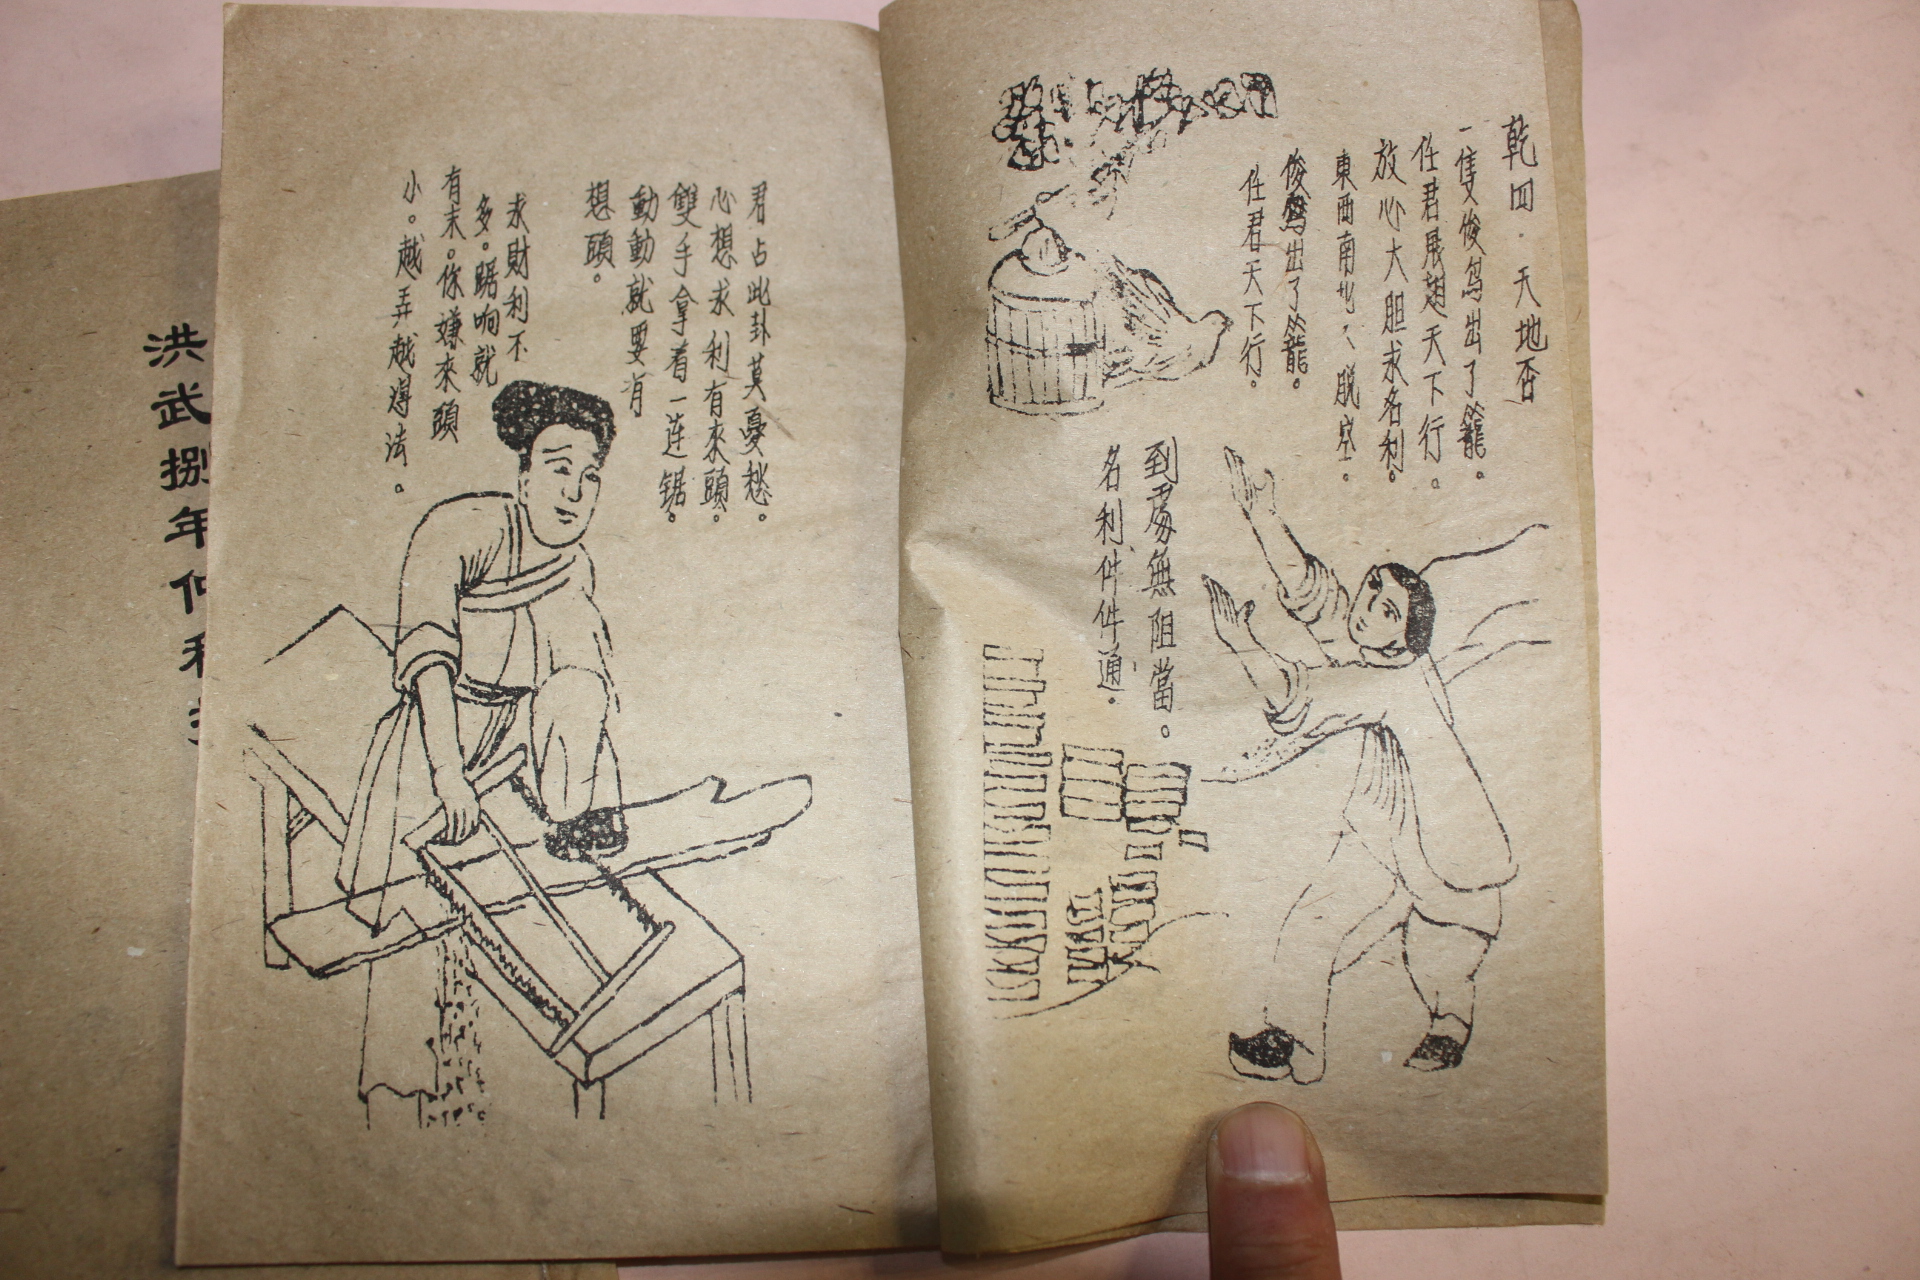 乾四．天地否
一隻俊鸟出了籠。
任君展翅天下行。
放心大胆求名利。
東西南北不脱空．
俊鸟出了籠。
任君天下行。
到處無阻當。
名利件件通．
君占此卦莫憂愁。
心想求利有來頭。
雙手拿着一连锯。
動動就要有
想頭。
求財利不
多。踞响就
有末。你嫌來頭
小。越弄越得法。
洪武捌年仲秋